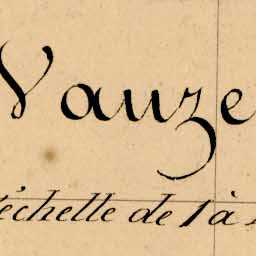 Vauze
l'échelle de 1 à